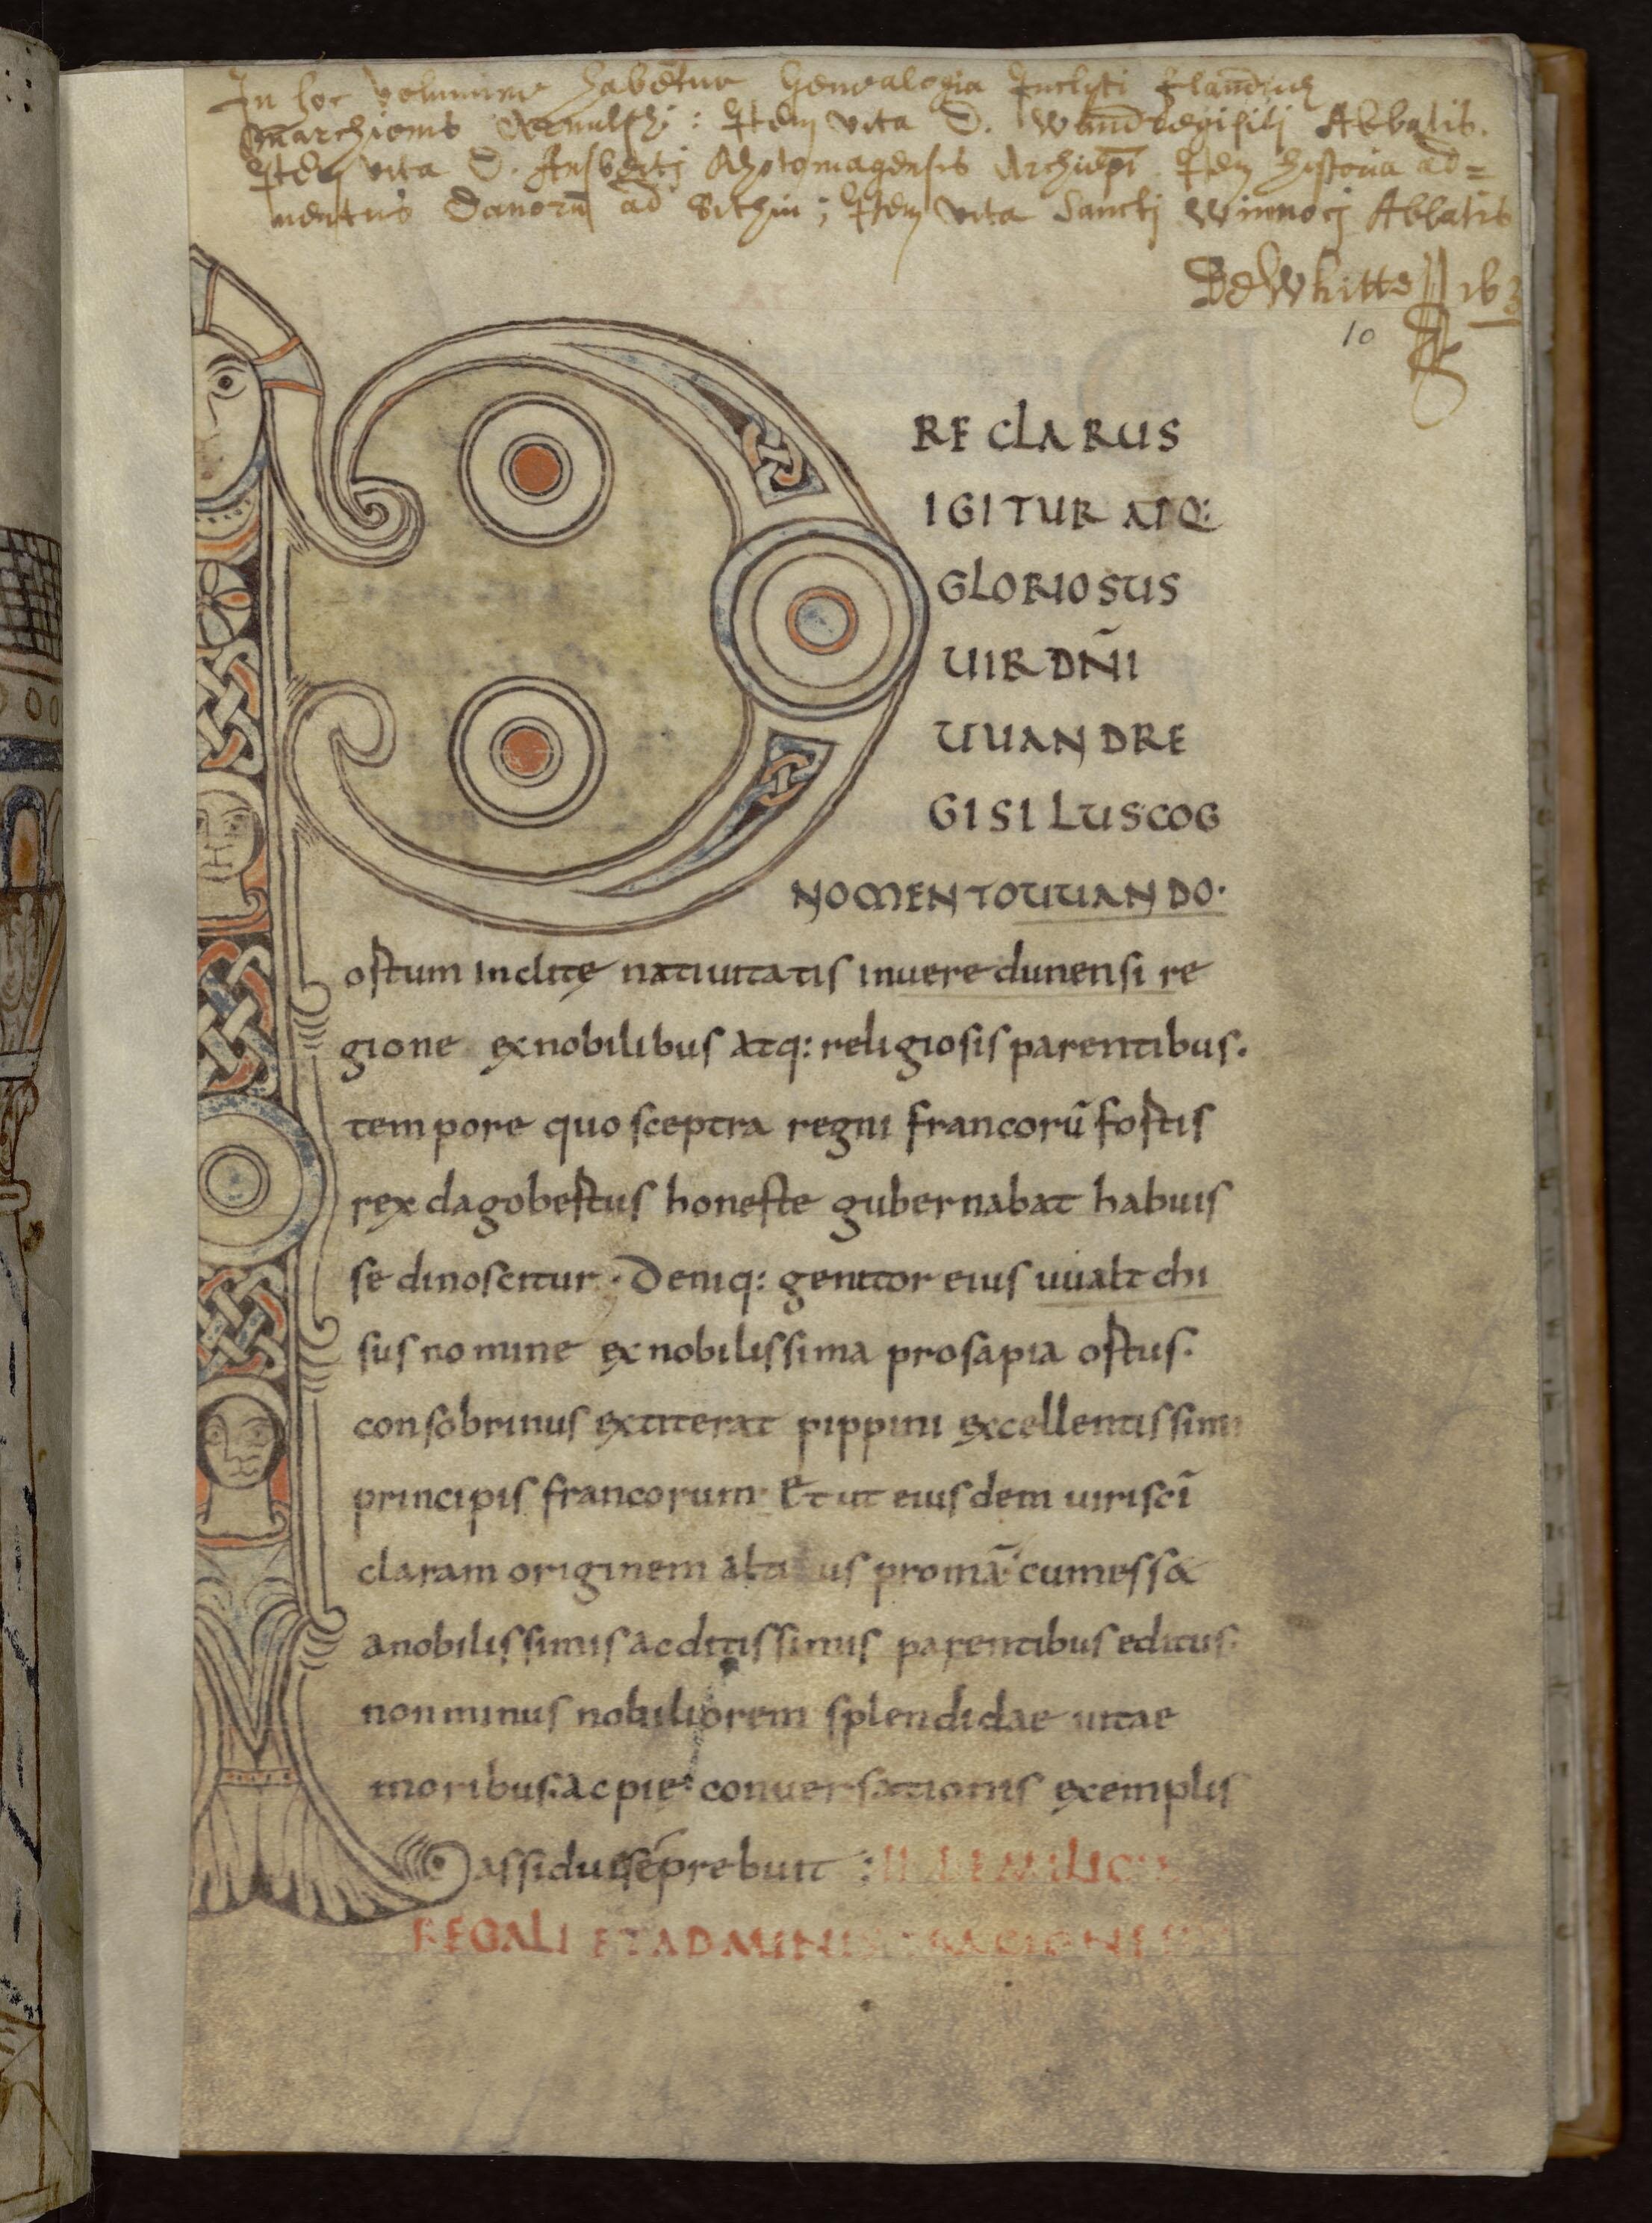 In hoc volumine habetur Genealogia Inclyti Flandriæ
Marchionis Arnulphi : Item vita D. Wandregisili Abbatis.
Item vita D. Ansberti Rhotomagensis Archiepi. Item historia ad=
ventus Danorū ad Sithiu ; Item vita Sancti Winnoci Abbatis
DeWhitte
10
RE CLARUS
IGITUR ATQ:
GLORIOSUS
UIR DÑI
UUANDRE
GISILUS COG
NOMENTO UUANDO.
ortum inclitę natiuitatis in uere dunensi re
gione ex nobilibus atq: religiosis parentibus.
tempore quo sceptra regni francorū fortis
rex dagobertus honeste gubernabat habuis
se dinoscitur. Deniq: genitor eius uualtchi
sus nomine ex nobilissima prosapia ortus.
consobrinus extiterat pippini excellentissimi
principis francorum. Et ut eiusdem uiri scī
claram originem promā cum esset
a nobilissimis ac ditissimis parentibus editus.
non minus nobiliorem splendidae uitae
moribus. ac pię conuersationis exemplis
assidue se prebuit : II DE MILICIA
REGALI ET ADMINISTRACIONE